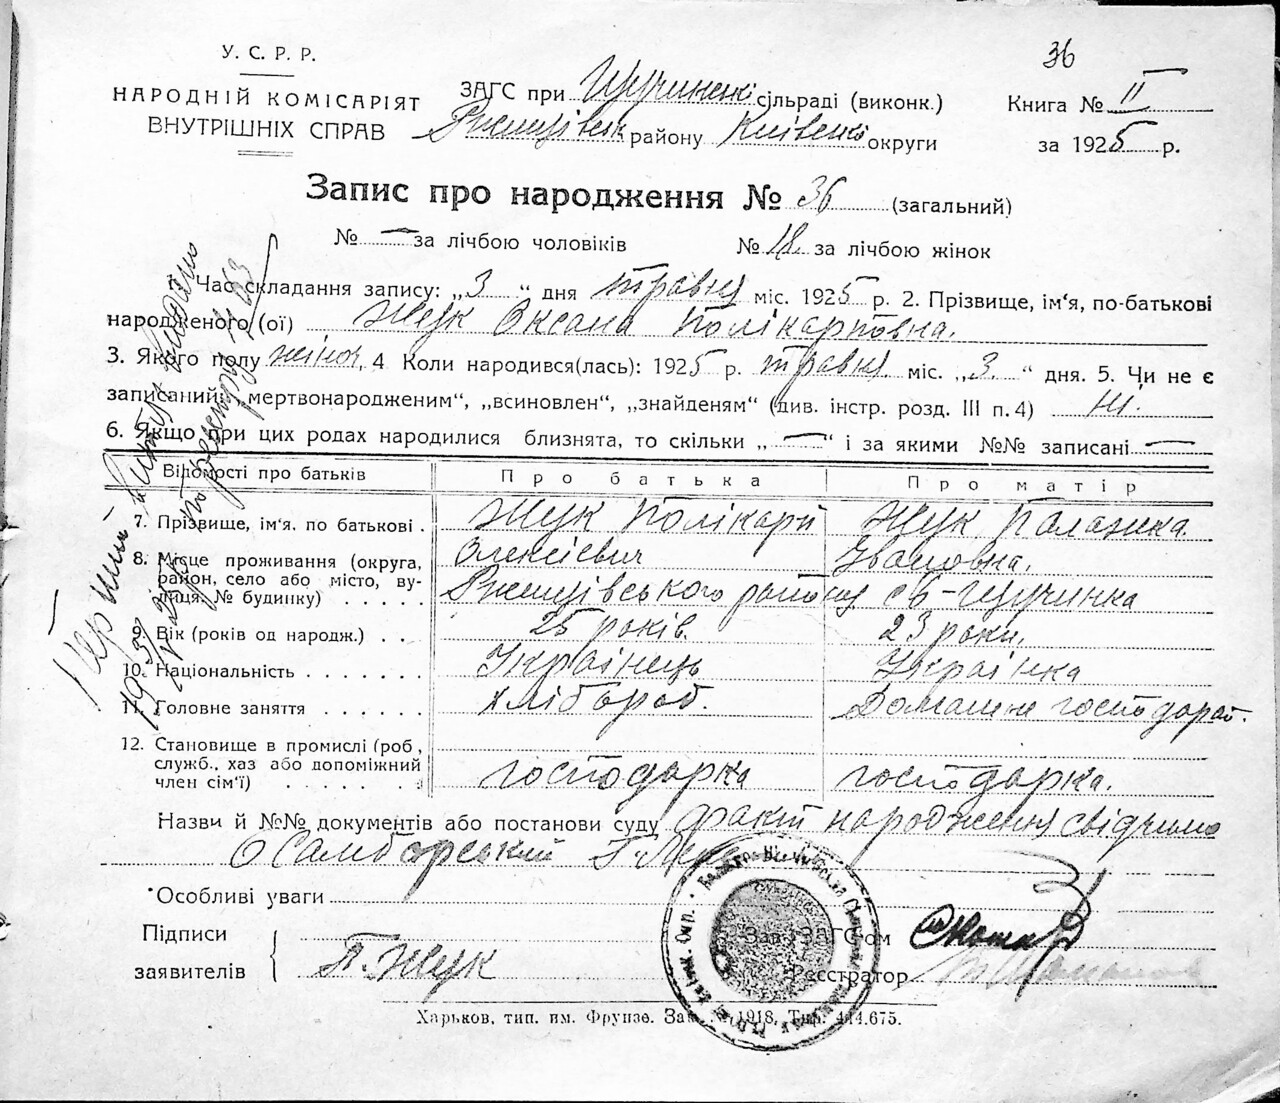 36
У. С. Р. Р.
НАРОДНІЙ КОМІСАРІЯТ
ВНУТРІШНІХ СПРАВ
ЗАГС при Щучинскі сільраді (виконк.)
Ржищівськ району Київські округи
Книга № II
за 1925 р.
Запис про народження № 36 (загальний)
№ — за лічбою чоловіків № 18 за лічбою жінок
Час складання запису: „3“ дня травня міс. 1925 р. 2. Прізвище, ім'я, по-батькові
народженого (ої) Жук Оксана Полікарповна.
3. Якого полу жіноч. 4 Коли народився(лась): 1925 р. травня міс. „3.“ дня. 5. Чи не є
записаний: „мертвонародженим“, „всиновлен“, „знайденям“ (див. інстр. розд. III п. 4) Ні.
6. Якщо при цих родах народилися близнята, то скільки „—“ і за якими №№ записані —
Відомості про батьків Про батька Про матір
7. Прізвище, ім'я, по батькові . Жук Полікарп Жук Палажка
Олексієвич Івановна.
8. Місце проживання (округа, район, село або місто, вулиця, № будинку) . . . . . Ржищівського району с. Щучинка
9. Вік (років од народж.) . . 25 років. 23 роки.
10. Національність . . . . . . . Українець Українка
11. Головне заняття . . . . . . хлібороб. Домашне господарст.
12. Становище в промислі (роб., служб., хаз або допоміжний член сім'ї) . . . . . . господарка господарка.
Назви й №№ документів або постанови суду факт народження свідчимо
Самборський
Особливі уваги
Підписи
заявителів П. Жук
Зав. ЗАГС'ом
Реєстратор
Харьков, тип. им. Фрунзе. Зак. 1918. Тир. 414.675.